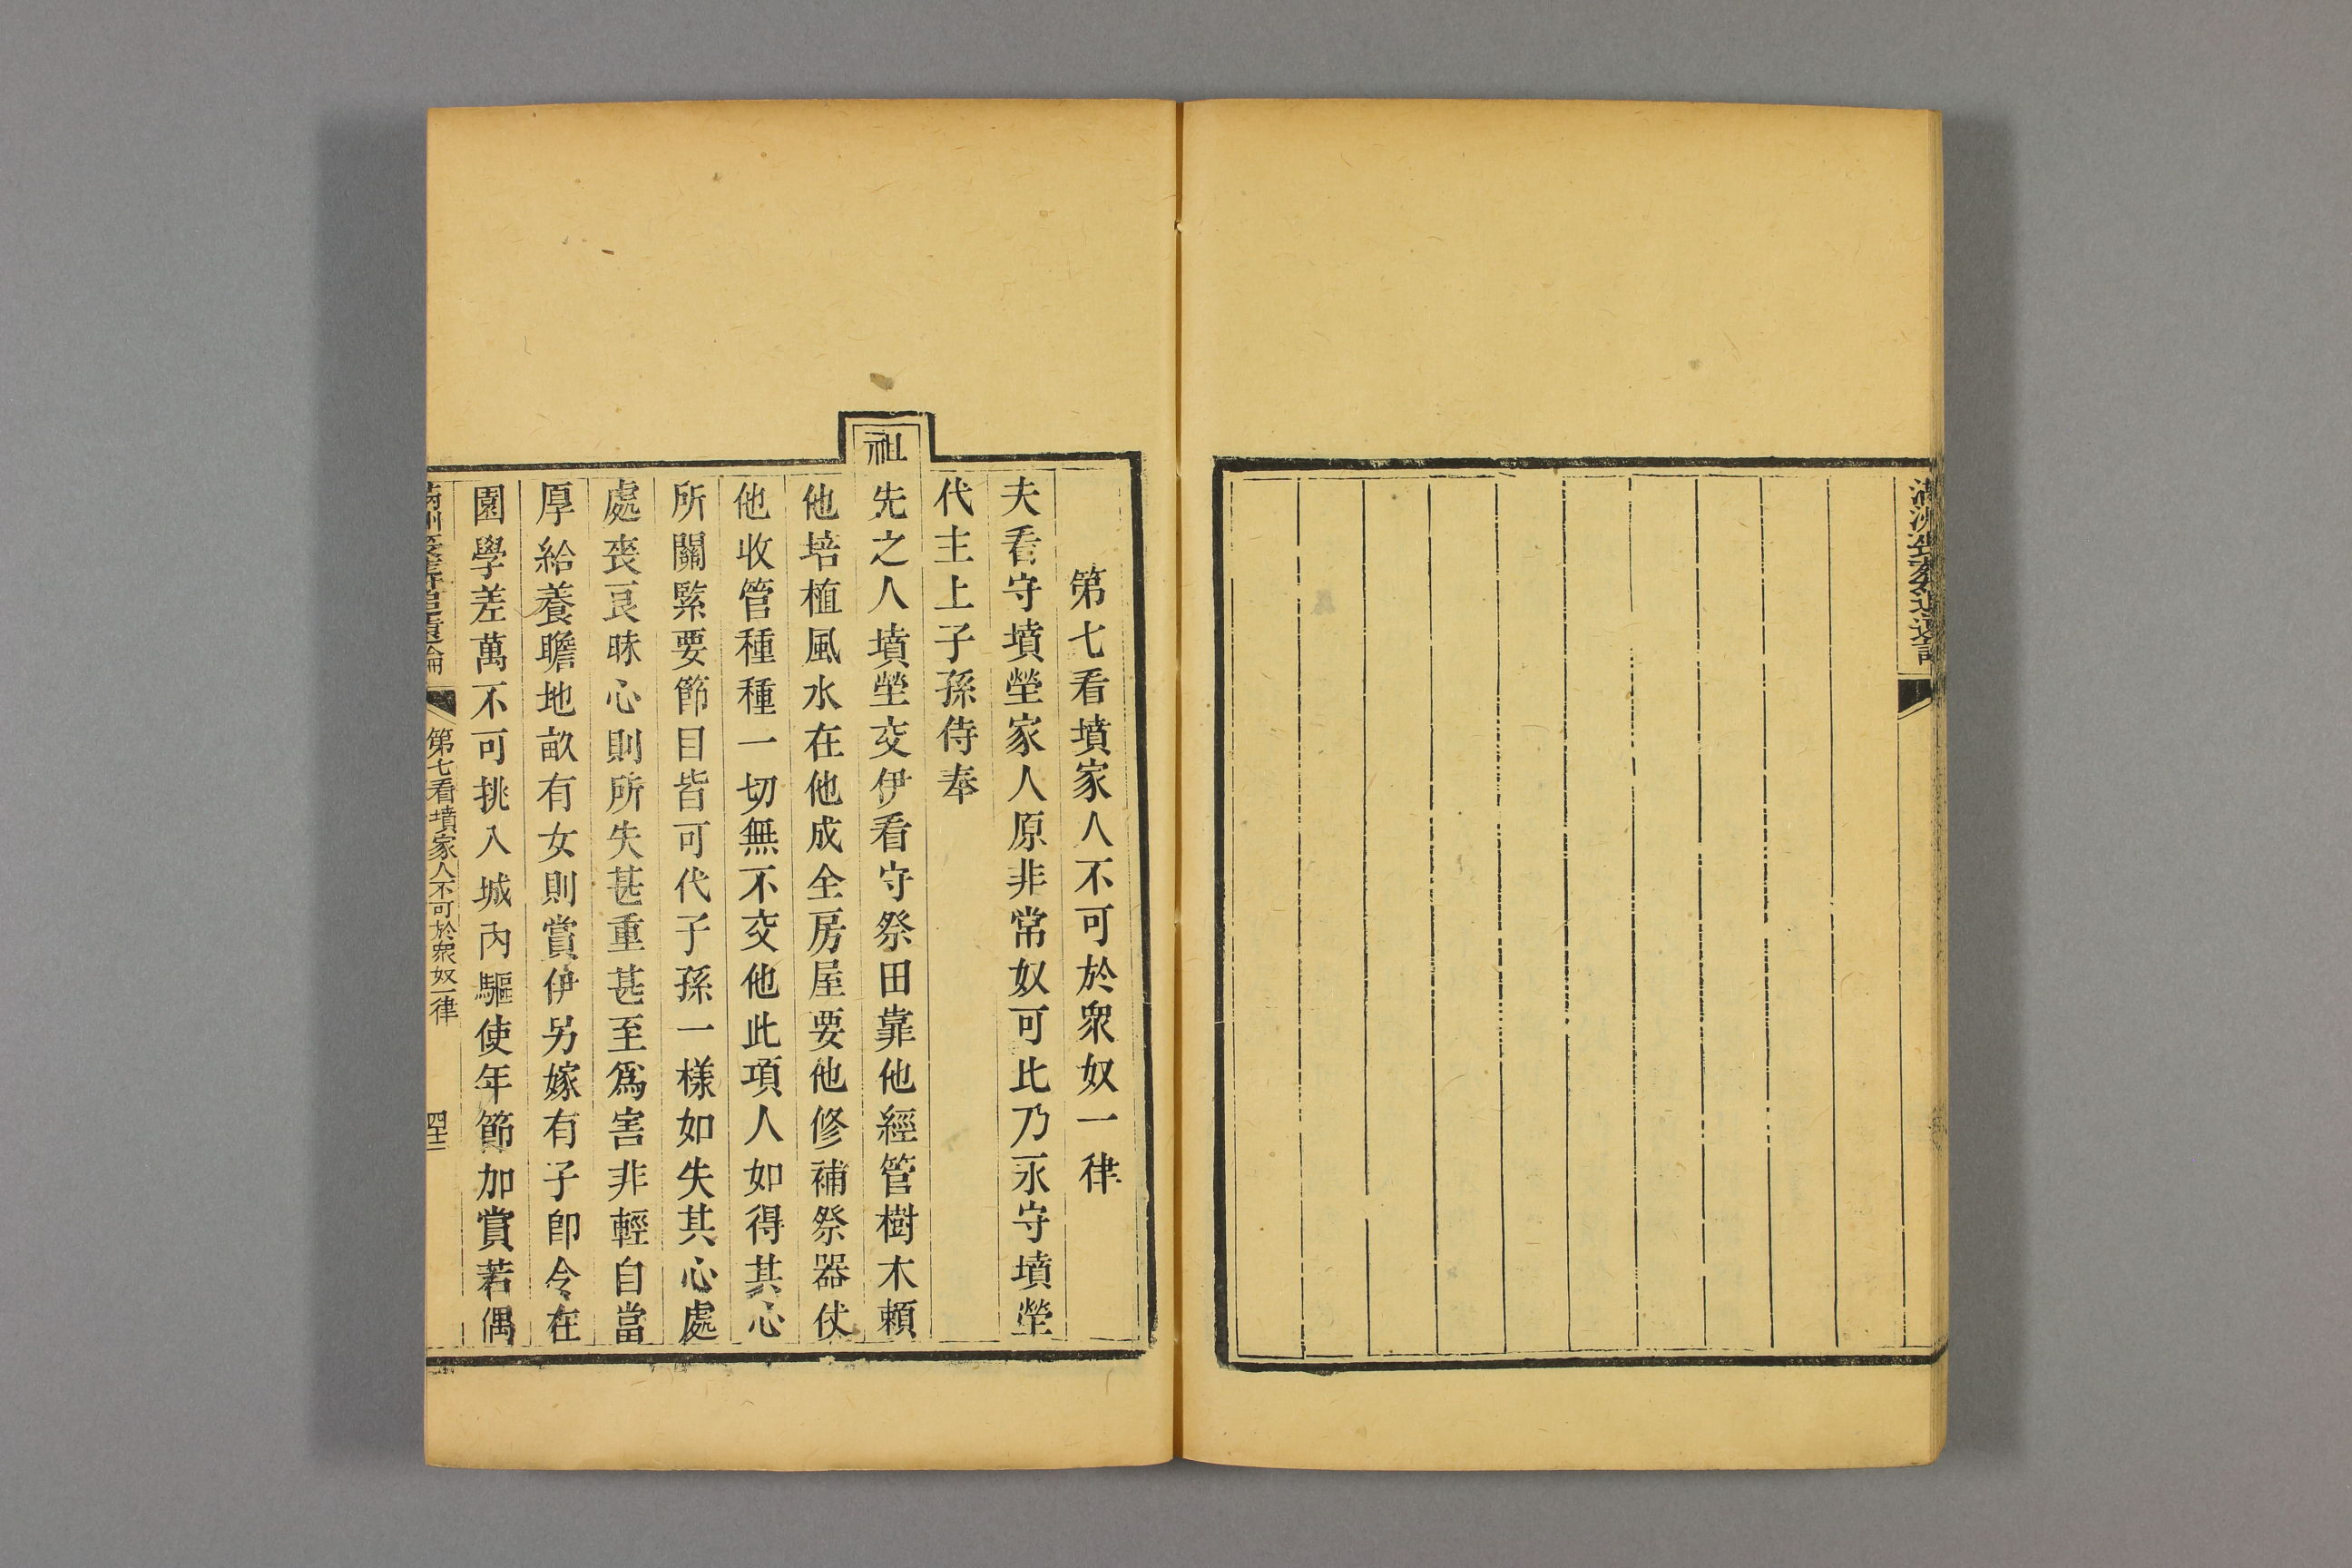 第七看墳家人不可於衆奴一律
夫看守墳塋家人原非常奴可比乃永守墳塋
代主上子孫侍奉
祖先之人墳塋交伊看守祭田靠他經管樹木賴
他培植風水在他成全房屋要他修補祭器仗
他收管種種一切無不交他此項人如得其心
所關緊要節目皆可代子孫一樣如失其心處
處喪良昧心則所失甚重甚至爲害非輕自當
厚給養贍地畝有女則賞伊另嫁有子卽令在
園學差萬不可挑入城內驅使年節加賞若偶
第七看墳家人不可於衆奴一律